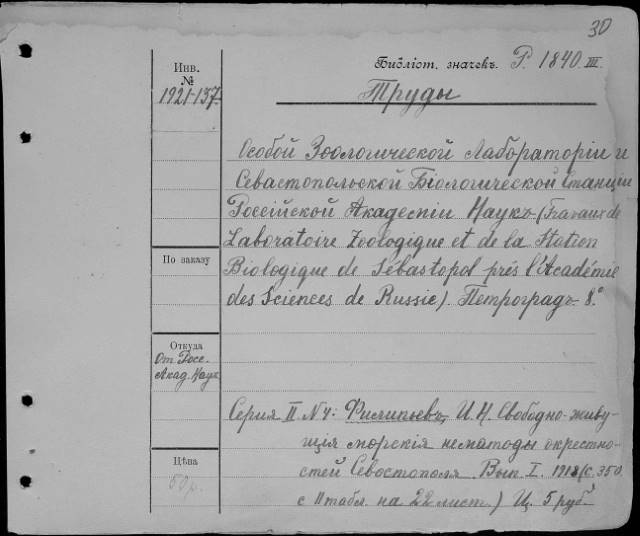 30
Библіот. значекъ. P. 1840 III.
Инв.
№
1921-137.
Труды
Особой Зоологической Лабораторіи и
Севастопольской Біологической Станціи
Россійской Академіи Наукъ (Travaux de
Laboratoire Zoologique et de la Station
Biologique de Sébastopol prés l'Académie
des Sciences de Russie). Петроградъ 8.°
По заказу
Откуда
От Росс.
Акад. Наук
Серия II. N 4: Филипьевъ, И. Н. Свободно-живу-
щія морскія нематоды окрестно-
стей Севостополя. Вып. I. 1918 (с. 350.
с 11 табл. на 22 лист.) Ц. 5 руб.
Цѣна
50 р.